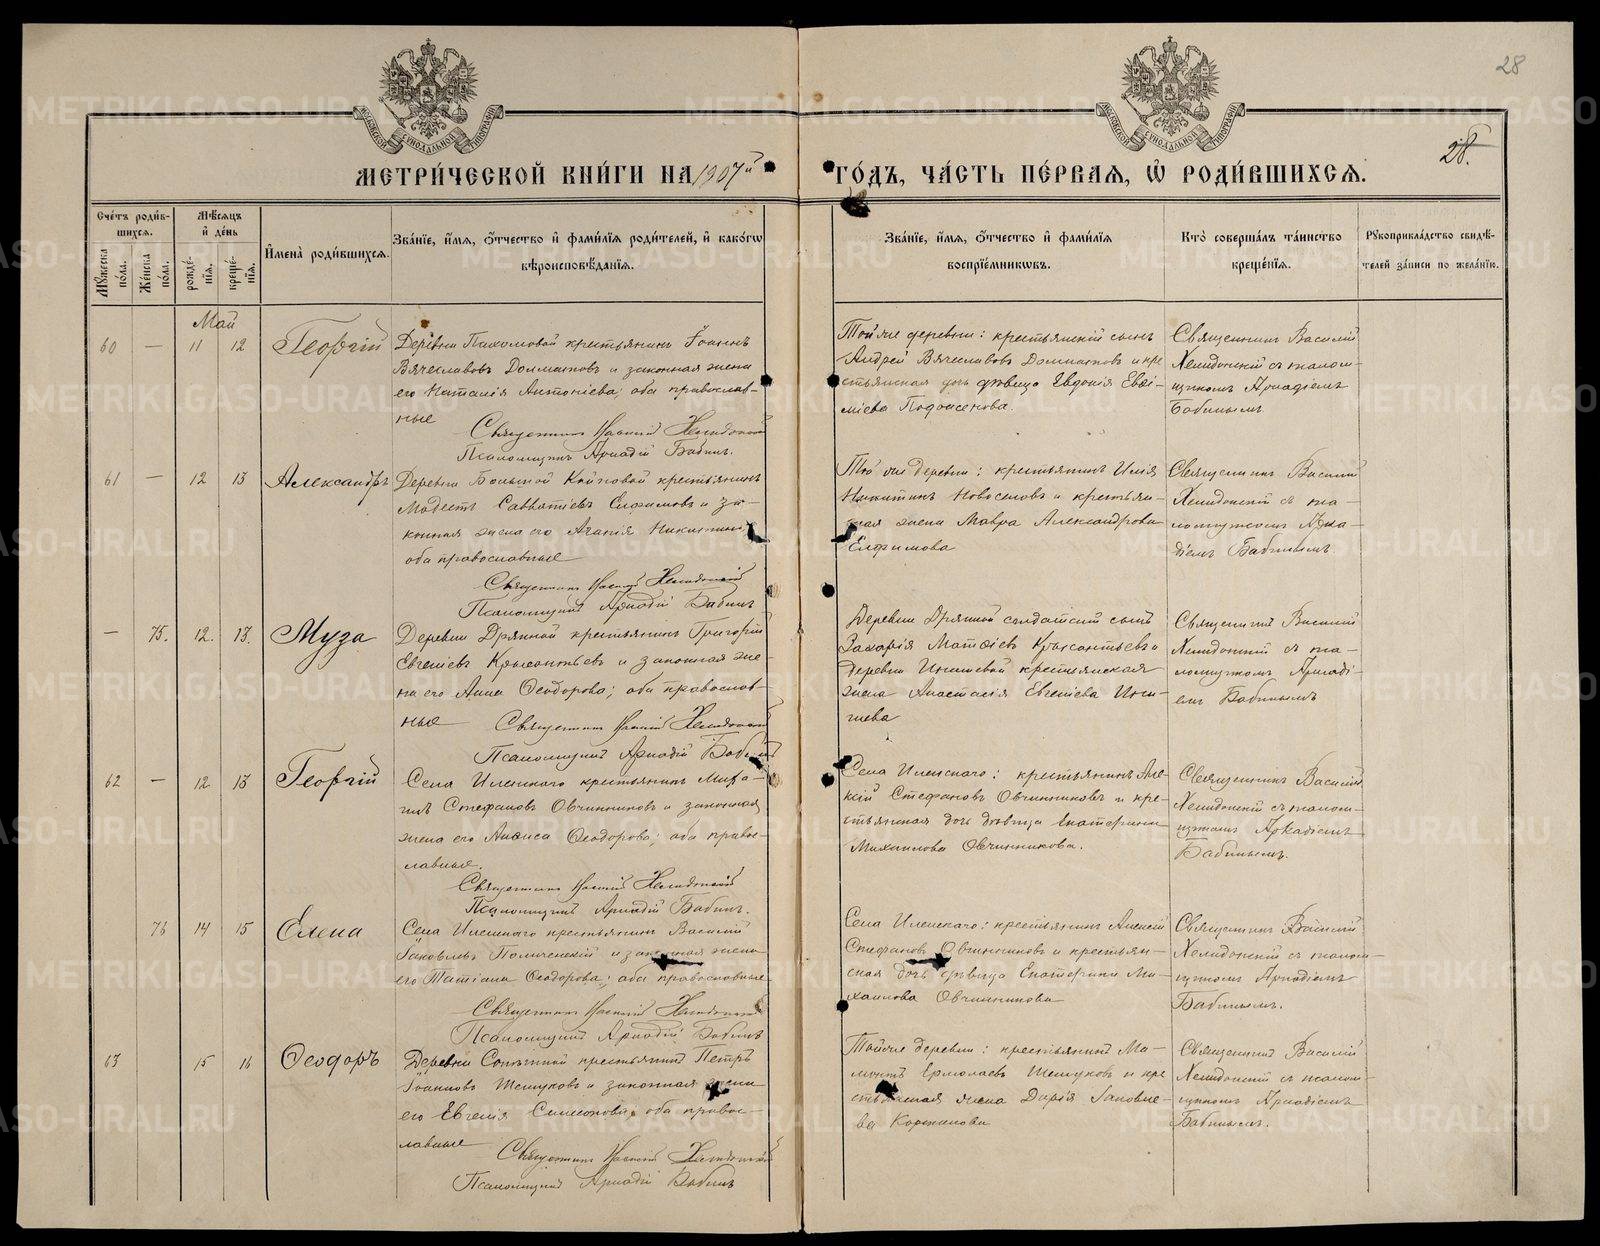 28
28.
МЕТРИ́ЧЕСКОЙ КНИ́ГИ НА 1907й ГО́ДЪ, ЧА́СТЬ ПЕ́РВАЯ, Ѽ РОДИ́ВШИХСЯ.
Сче́тъ роди́в-
шихся.
Мꙋ́жеска по́ла.
Же́нска по́ла.
Мѣ́сяцъ
и҆ де́нь
рожде́-
нїя.
креще́-
нїя.
И҆мена̀ роди́вшихся.
Зва́нїе, и҆́мя, ѻ҆́тчество и҆ фами́лїя роди́телей, и҆ како́гѡ
вѣроисповѣ́данїя.
Зва́нїе, и҆́мя, ѻ҆́тчество и҆ фами́лїя
воспрїе́мникѡвъ.
Кто̀ соверша́лъ та́инство
креще́нїя.
Рꙋкоприкла́дство свидѣ́-
телей за́писи по жела́нїю.
Май
60 — 11 12 Георгій
Деревни Пахомовой крестьянинъ Іоаннъ
Вячеславовъ Долматовъ и законная жена
его Наталія Антоніева, оба православ-
ные
Священникъ Василій Хелидонскій
Псаломщикъ Аркадій Бабинъ.
Той же деревни: крестьянскій сынъ
Андрей Вячеславовъ Долматовъ и кре-
стьянская дочь дѣвица Евдокія Евѳи-
міева
Священникъ Василій
Хелидонскій съ псалом-
щикомъ Аркадіемъ
Бабинымъ
61 — 12 13 Александръ
Деревни Большой крестьянинъ
Модестъ Савватіевъ Елфимовъ и за-
конная жена его Агапія Никитина
оба православные
Священникъ Василій Хелидонскій
Псаломщикъ Аркадій Бабинъ
Той же деревни: крестьянинъ Илія
Никитинъ Новоселовъ и крестьян-
ская жена Мавра Александрова
Елфимова
Священникъ Василій
Хелидонскій съ пса-
ломщикомъ Арка-
діемъ Бабинымъ.
— 75. 12. 13. Муза
Деревни Дрянной крестьянинъ Григорій
Евгеніевъ Крысантьевъ и законная же-
на его Анна Ѳеодорова; оба православ-
ные
Священникъ Василій Хелидонскій
Псаломщикъ Аркадій Бабинъ
Деревни Дрянной солдатскій сынъ
Захарія Матѳіевъ Крысантьевъ и
деревни крестьянская
жена Анастасія Евгеніева
Священникъ Василій
Хелидонскій съ пса-
ломщикомъ Аркаді-
емъ Бабинымъ
62 — 12 13 Георгій
Села Илимскаго крестьянинъ Миха-
илъ Стефановъ Овчинниковъ и законная
жена его Анфиса Ѳеодорова; оба право-
славные.
Священникъ Василій Хелидонскій
Псаломщикъ Аркадій Бабинъ.
Села Илимскаго: крестьянинъ Але-
ксій Стефановъ Овчинниковъ и кре-
стьянская дочь дѣвица Екатерина
Михаилова Овчинникова.
Священникъ Василій
Хелидонскій съ псалом-
щикомъ Аркадіемъ
Бабинымъ.
76 14 15 Елена
Села Илимскаго крестьянинъ Василій
Іаковлевъ и законная жена
его Татіана Ѳеодорова; оба православные
Священникъ Василій Хелидонскій
Псаломщикъ Аркадій Бабинъ
Села Илимскаго: крестьянинъ Алексій
Стефановъ Овчинниковъ и крестьян-
ская дочь дѣвица Екатерина Ми-
хаилова Овчинникова
Священникъ Василій
Хелидонскій съ псалом-
щикомъ Аркадіемъ
Бабинымъ.
63 15 16 Ѳеодоръ
Деревни крестьянинъ Петръ
Іоанновъ Шешуковъ и законная жена
его Евгенія Симеонова, оба право-
славные
Священникъ Василій Хелидонскій
Псаломщикъ Аркадій Бабинъ
Той же деревни: крестьянинъ Ма-
монтъ Ермолаевъ Шешуковъ и кре-
стьянская жена Дарія Іаковле-
ва
Священникъ Василій
Хелидонскій съ псалом-
щикомъ Аркадіемъ
Бабинымъ.
METRIKI.GASO-URAL.RU